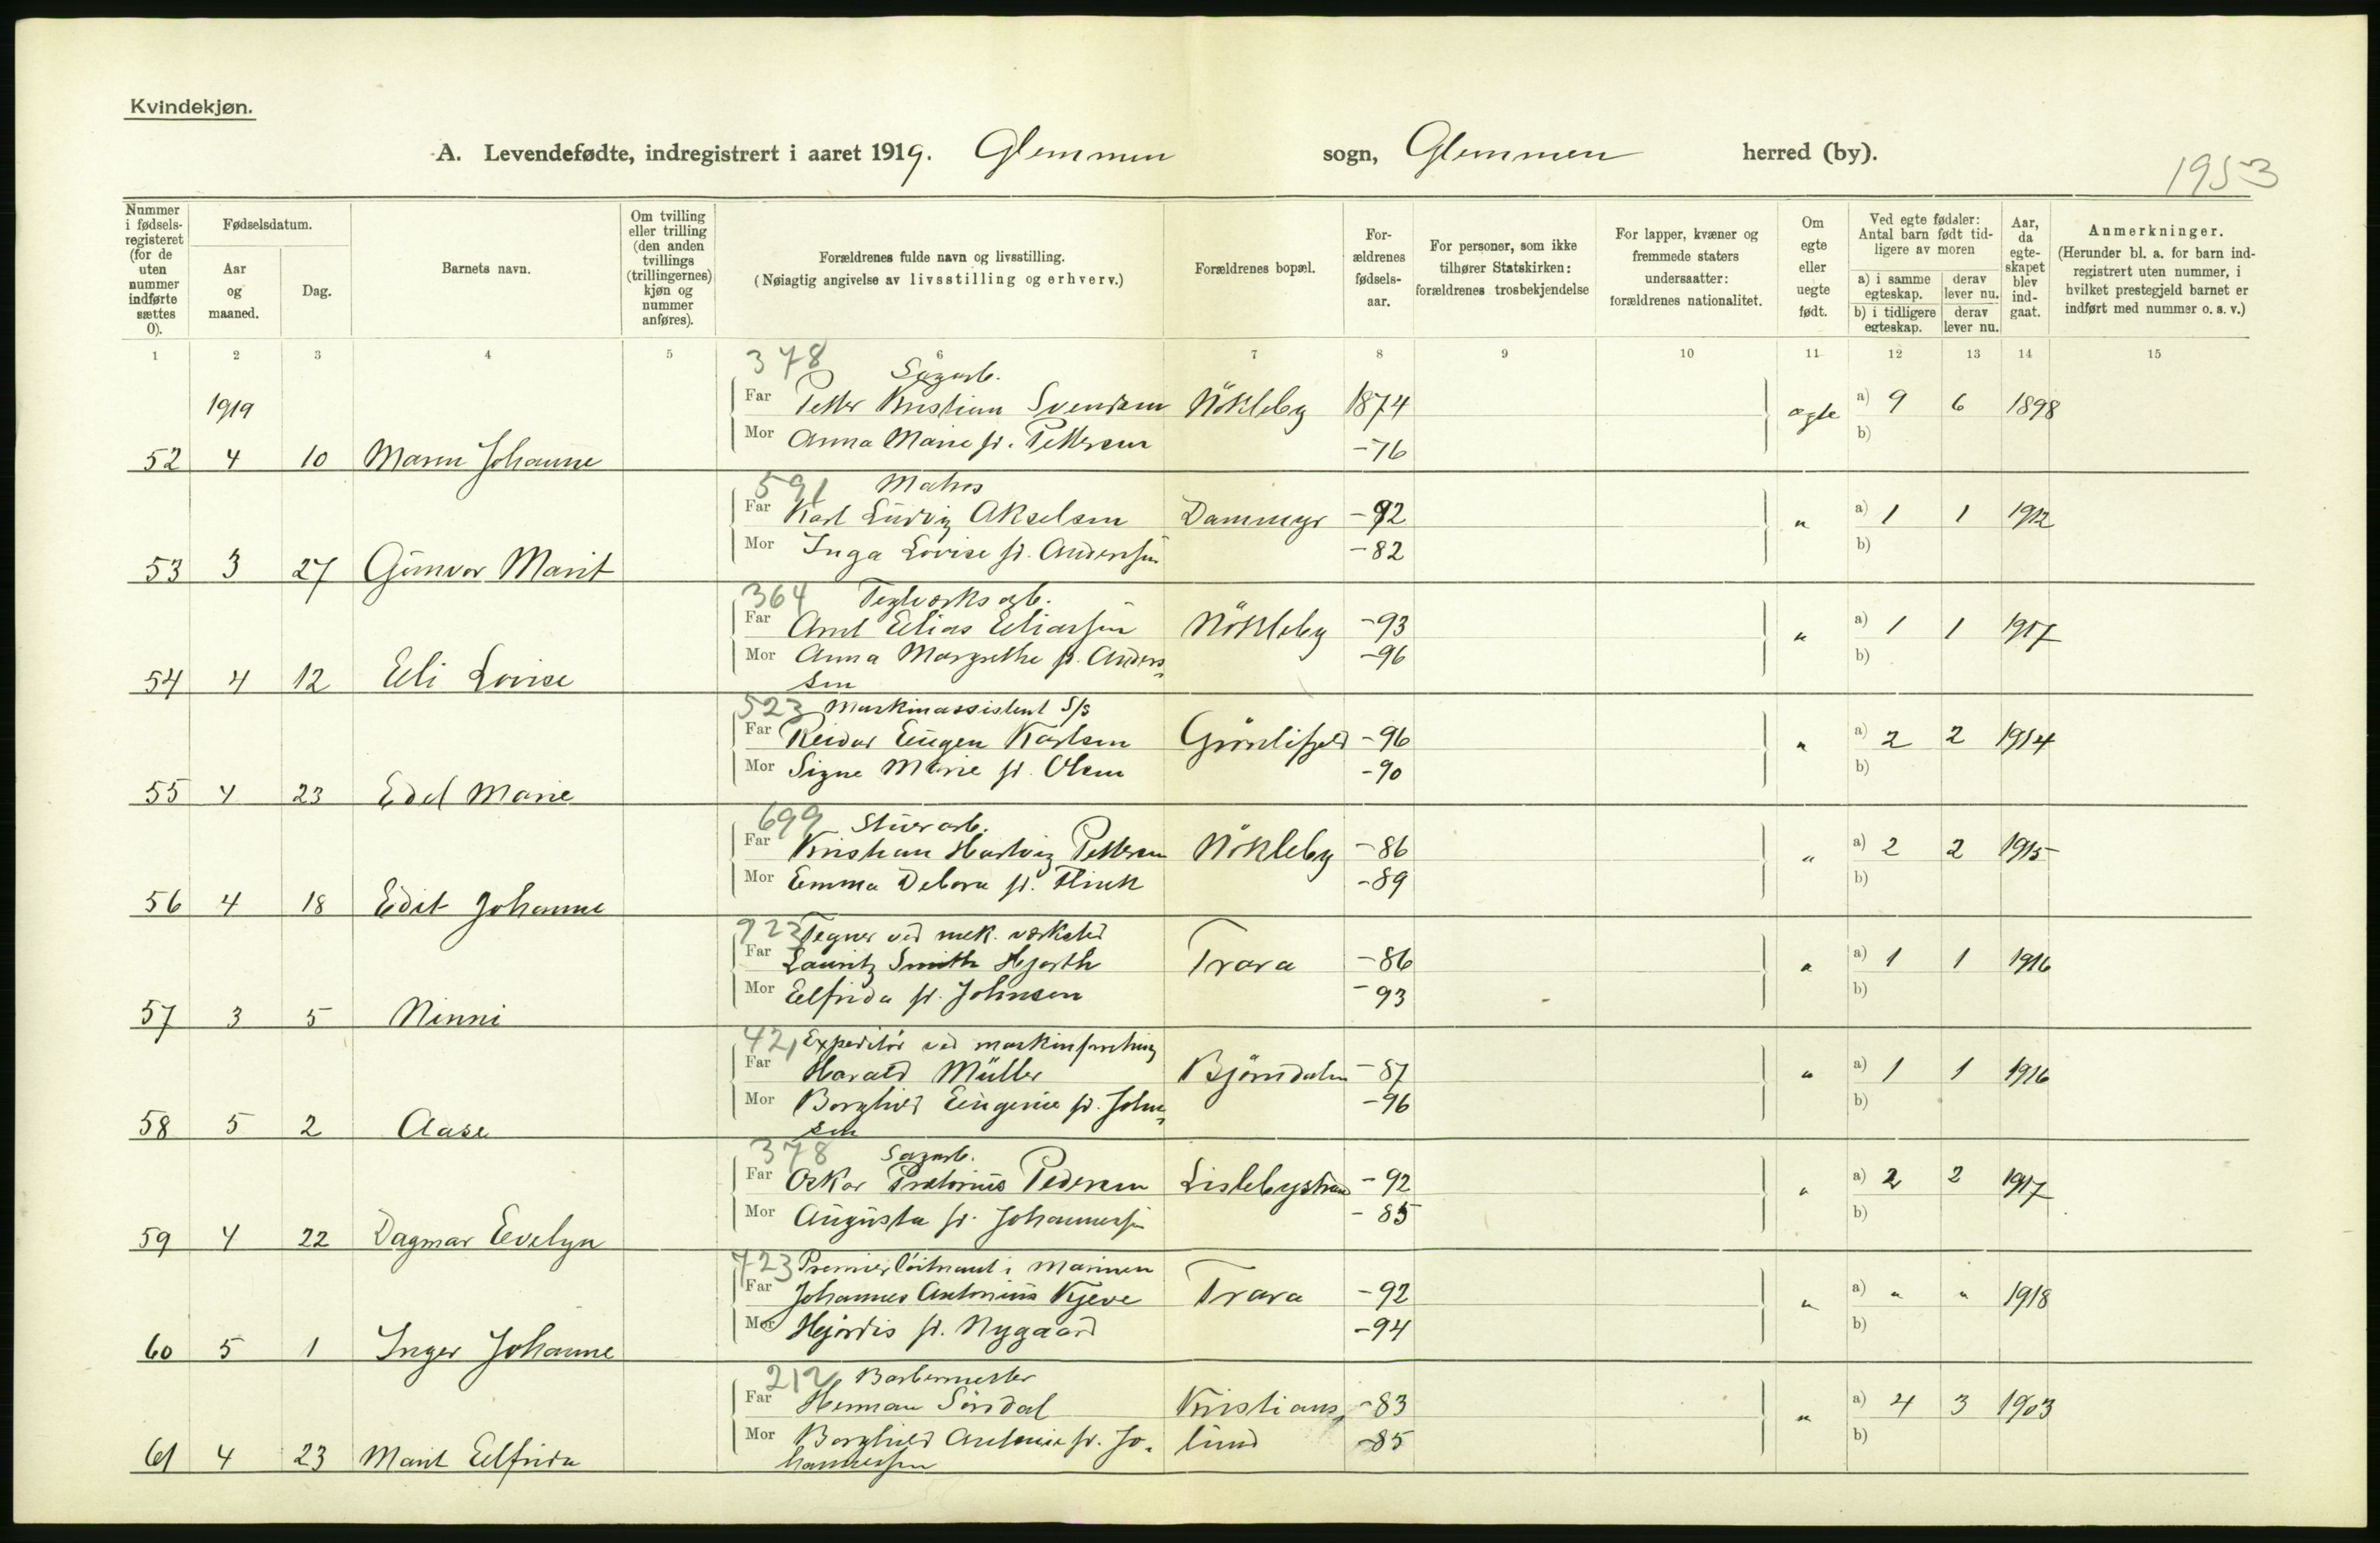 Kvindekjøn.
A. Levendefødte, indregistrert i aaret 1919. Glemmen sogn, Glemmen herred (by).
1953
Nummer i fødsels-registeret (for de uten nummer indførte sættes 0).
Fødselsdatum.
Aar og maaned.
Dag.
Barnets navn.
Om tvilling eller trilling (den anden tvillings (trillingernes) kjøn og nummer anføres).
Forældrenes fulde navn og livsstilling.
(Nøiagtig angivelse av livsstilling og erhverv.)
Forældrenes bopæl.
For-ældrenes fødsels-aar.
For personer, som ikke tilhører Statskirken: forældrenes trosbekjendelse
For lapper, kvæner og fremmede staters undersaatter: forældrenes nationalitet.
Om egte eller uegte født.
Ved egte fødsler: Antal barn født tid-ligere av moren
a) i samme egteskap.
derav lever nu.
b) i tidligere egteskap.
derav lever nu.
Aar, da egte-skapet blev ind-gaat.
Anmerkninger.
(Herunder bl. a. for barn ind-registrert uten nummer, i hvilket prestegjeld barnet er indført med nummer o. s. v.)
1 2 3 4 5 6 7 8 9 10 11 12 13 14 15
378 Sagarb.
1919 Far Petter Kristian Svendsen Nökleby 1874 ægte a) 9 6 1898
Mor Anna Marie f. Pettersen -76 b)
52 4 10 Maren Johanne
591 Matros
Far Karl Ludvig Akselsen Dammyr -92 " a) 1 1 1912
Mor Inga Lovise f. Andersen -82 b)
53 3 27 Gunvor Marit
364 Teglverksarb.
Far Arnt Elias Eliassen Nökleby -93 " a) 1 1 1917
Mor Anna Margrethe f. Anders- -96 b)
sen
54 4 12 Eli Lovise
523 Maskinassistent S/S
Far Reidar Eugen Karlsen Grönlifjeld -96 " a) 2 2 1914
Mor Signe Marie f. Olsen -90 b)
55 4 23 Edel Marie
699 Stuerarb.
Far Kristian Hartvig Pettersen Nökleby -86 " a) 2 2 1915
Mor Emma Debora f. Flink -89 b)
56 4 18 Edit Johanne
923 Tegner ved mek. værksted
Far Lauritz Smith Hjorth Trara -86 " a) 1 1 1916
Mor Elfrida f. Johnsen -93 b)
57 3 5 Ninni
421 Expeditör ved maskinforretning
Far Harald Müller Björndalen -87 " a) 1 1 1916
Mor Borghild Eugenie f. John- -96 b)
sen
58 5 2 Aase
378 Sagarb.
Far Oskar Prætorius Pedersen Lislebystrand -92 " a) 2 2 1917
Mor Augusta f. Johannessen -85 b)
59 4 22 Dagmar Evelyn
723 Premierlöitnant i Marinen
Far Johannes Antonius Kjeve Trara -92 " a) " " 1918
Mor Hjördis f. Nygaard -94 b)
60 5 1 Inger Johanne
212 Barbermester
Far Herman Sördal Kristians- -83 " a) 4 3 1903
Mor Borghild Antonie f. Jo- lund -85 b)
hannessen
61 4 23 Marit Elfrida